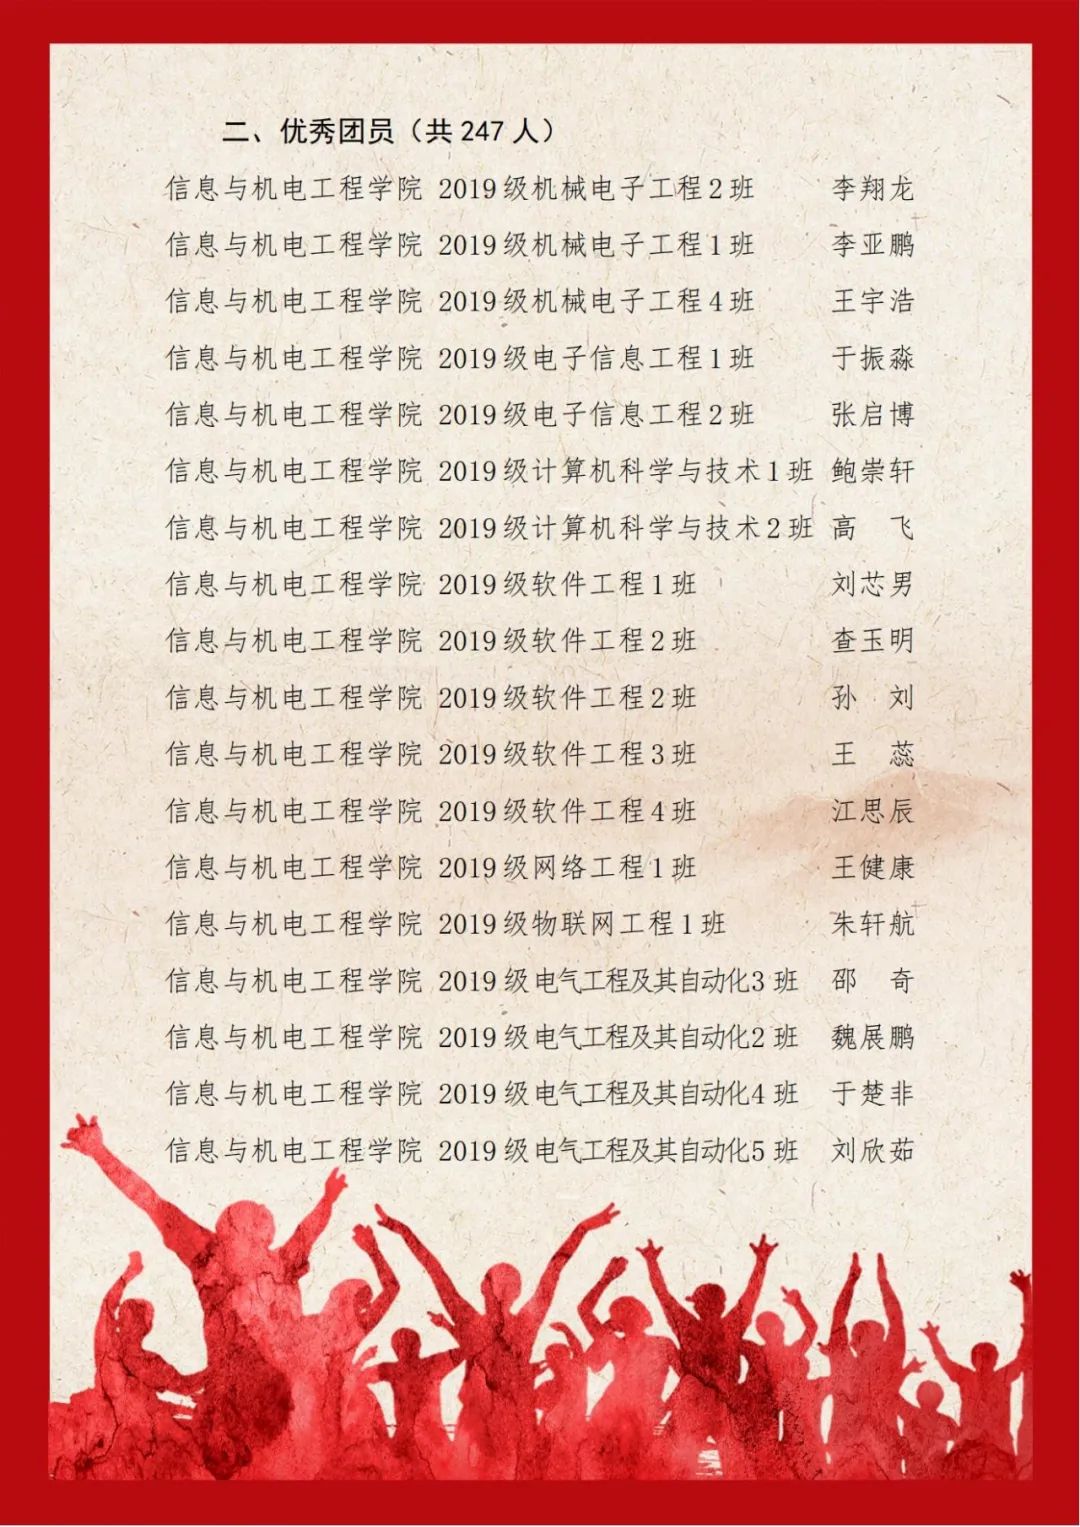 二、优秀团员（共247人）
信息与机电工程学院 2019级机械电子工程2班 李翔龙
信息与机电工程学院 2019级机械电子工程1班 李亚鹏
信息与机电工程学院 2019级机械电子工程4班 王宇浩
信息与机电工程学院 2019级电子信息工程1班 于振淼
信息与机电工程学院 2019级电子信息工程2班 张启博
信息与机电工程学院 2019级计算机科学与技术1班 鲍崇轩
信息与机电工程学院 2019级计算机科学与技术2班 高 飞
信息与机电工程学院 2019级软件工程1班 刘芯男
信息与机电工程学院 2019级软件工程2班 查玉明
信息与机电工程学院 2019级软件工程2班 孙 刘
信息与机电工程学院 2019级软件工程3班 王 蕊
信息与机电工程学院 2019级软件工程4班 江思辰
信息与机电工程学院 2019级网络工程1班 王健康
信息与机电工程学院 2019级物联网工程1班 朱轩航
信息与机电工程学院 2019级电气工程及其自动化3班 邵 奇
信息与机电工程学院 2019级电气工程及其自动化2班 魏展鹏
信息与机电工程学院 2019级电气工程及其自动化4班 于楚非
信息与机电工程学院 2019级电气工程及其自动化5班 刘欣茹